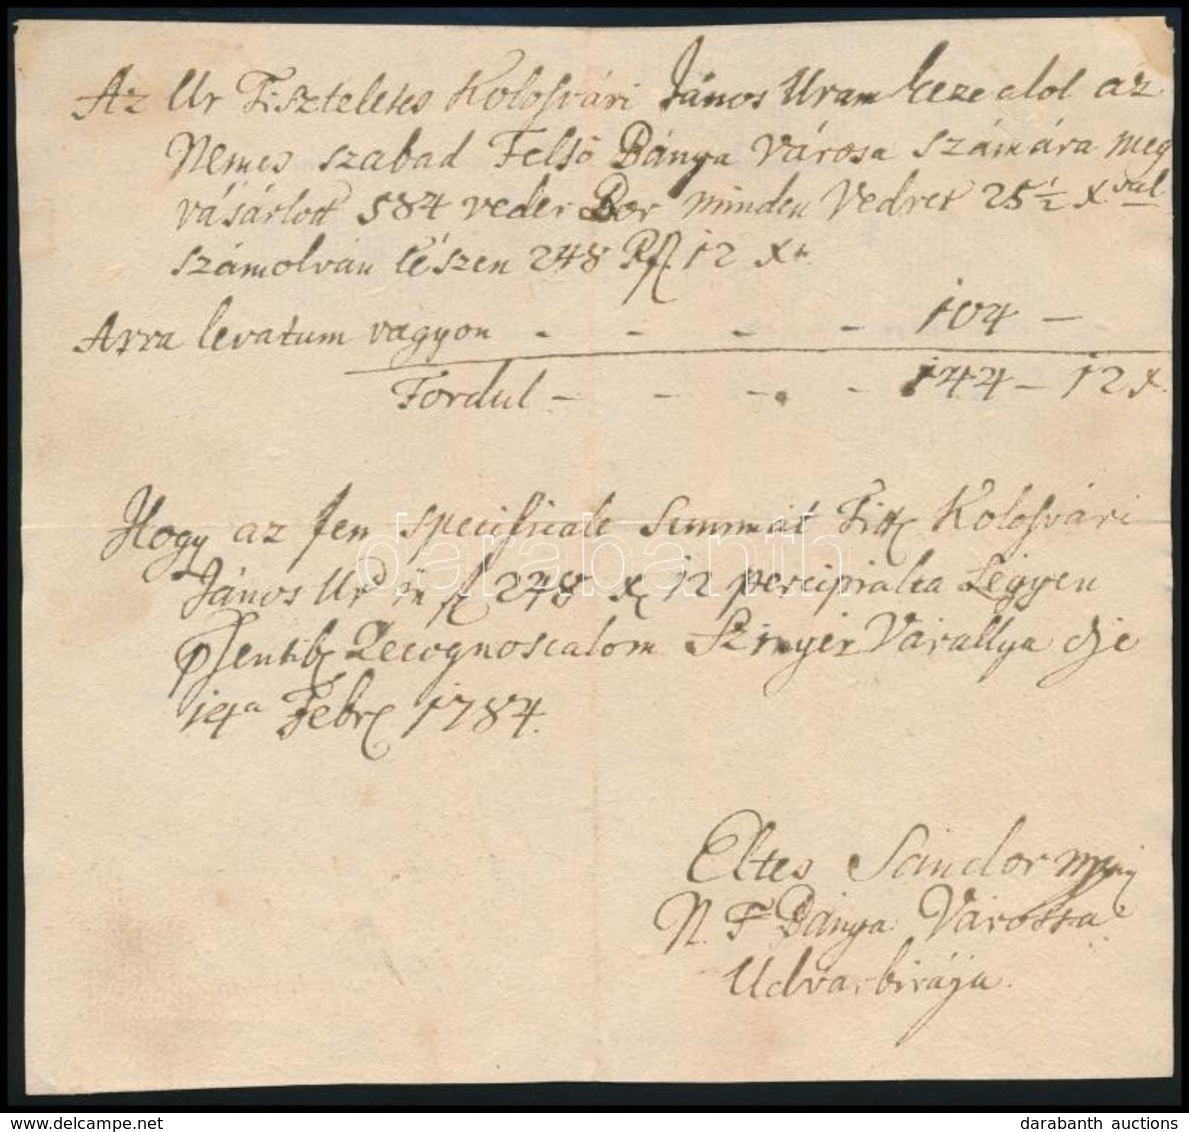 Az Ur Tiszteletes Kolosvári János Uram keze alol az
Nemes szabad Felső Bánya Városa számára meg
vásárlott 584 veder Bor minden Vedret 25 1/2 xval
számolván tészen 248 Rfl. 12 xr.
Arra levatum vagyon - - - - 104 -
Fordul - - - - 144 - 12 x.
Hogy az fen specificalt Summát Titt Kolosvári
János Ur in fl 248 x 12 percipialta Légyen
psentib Recognoscalom Szinyér Várallya die
14a Febr 1784.
Eltes Sándor mpria
N. F Bánya Várossa
Udvarbirája.
darabanth
darabanth auctions